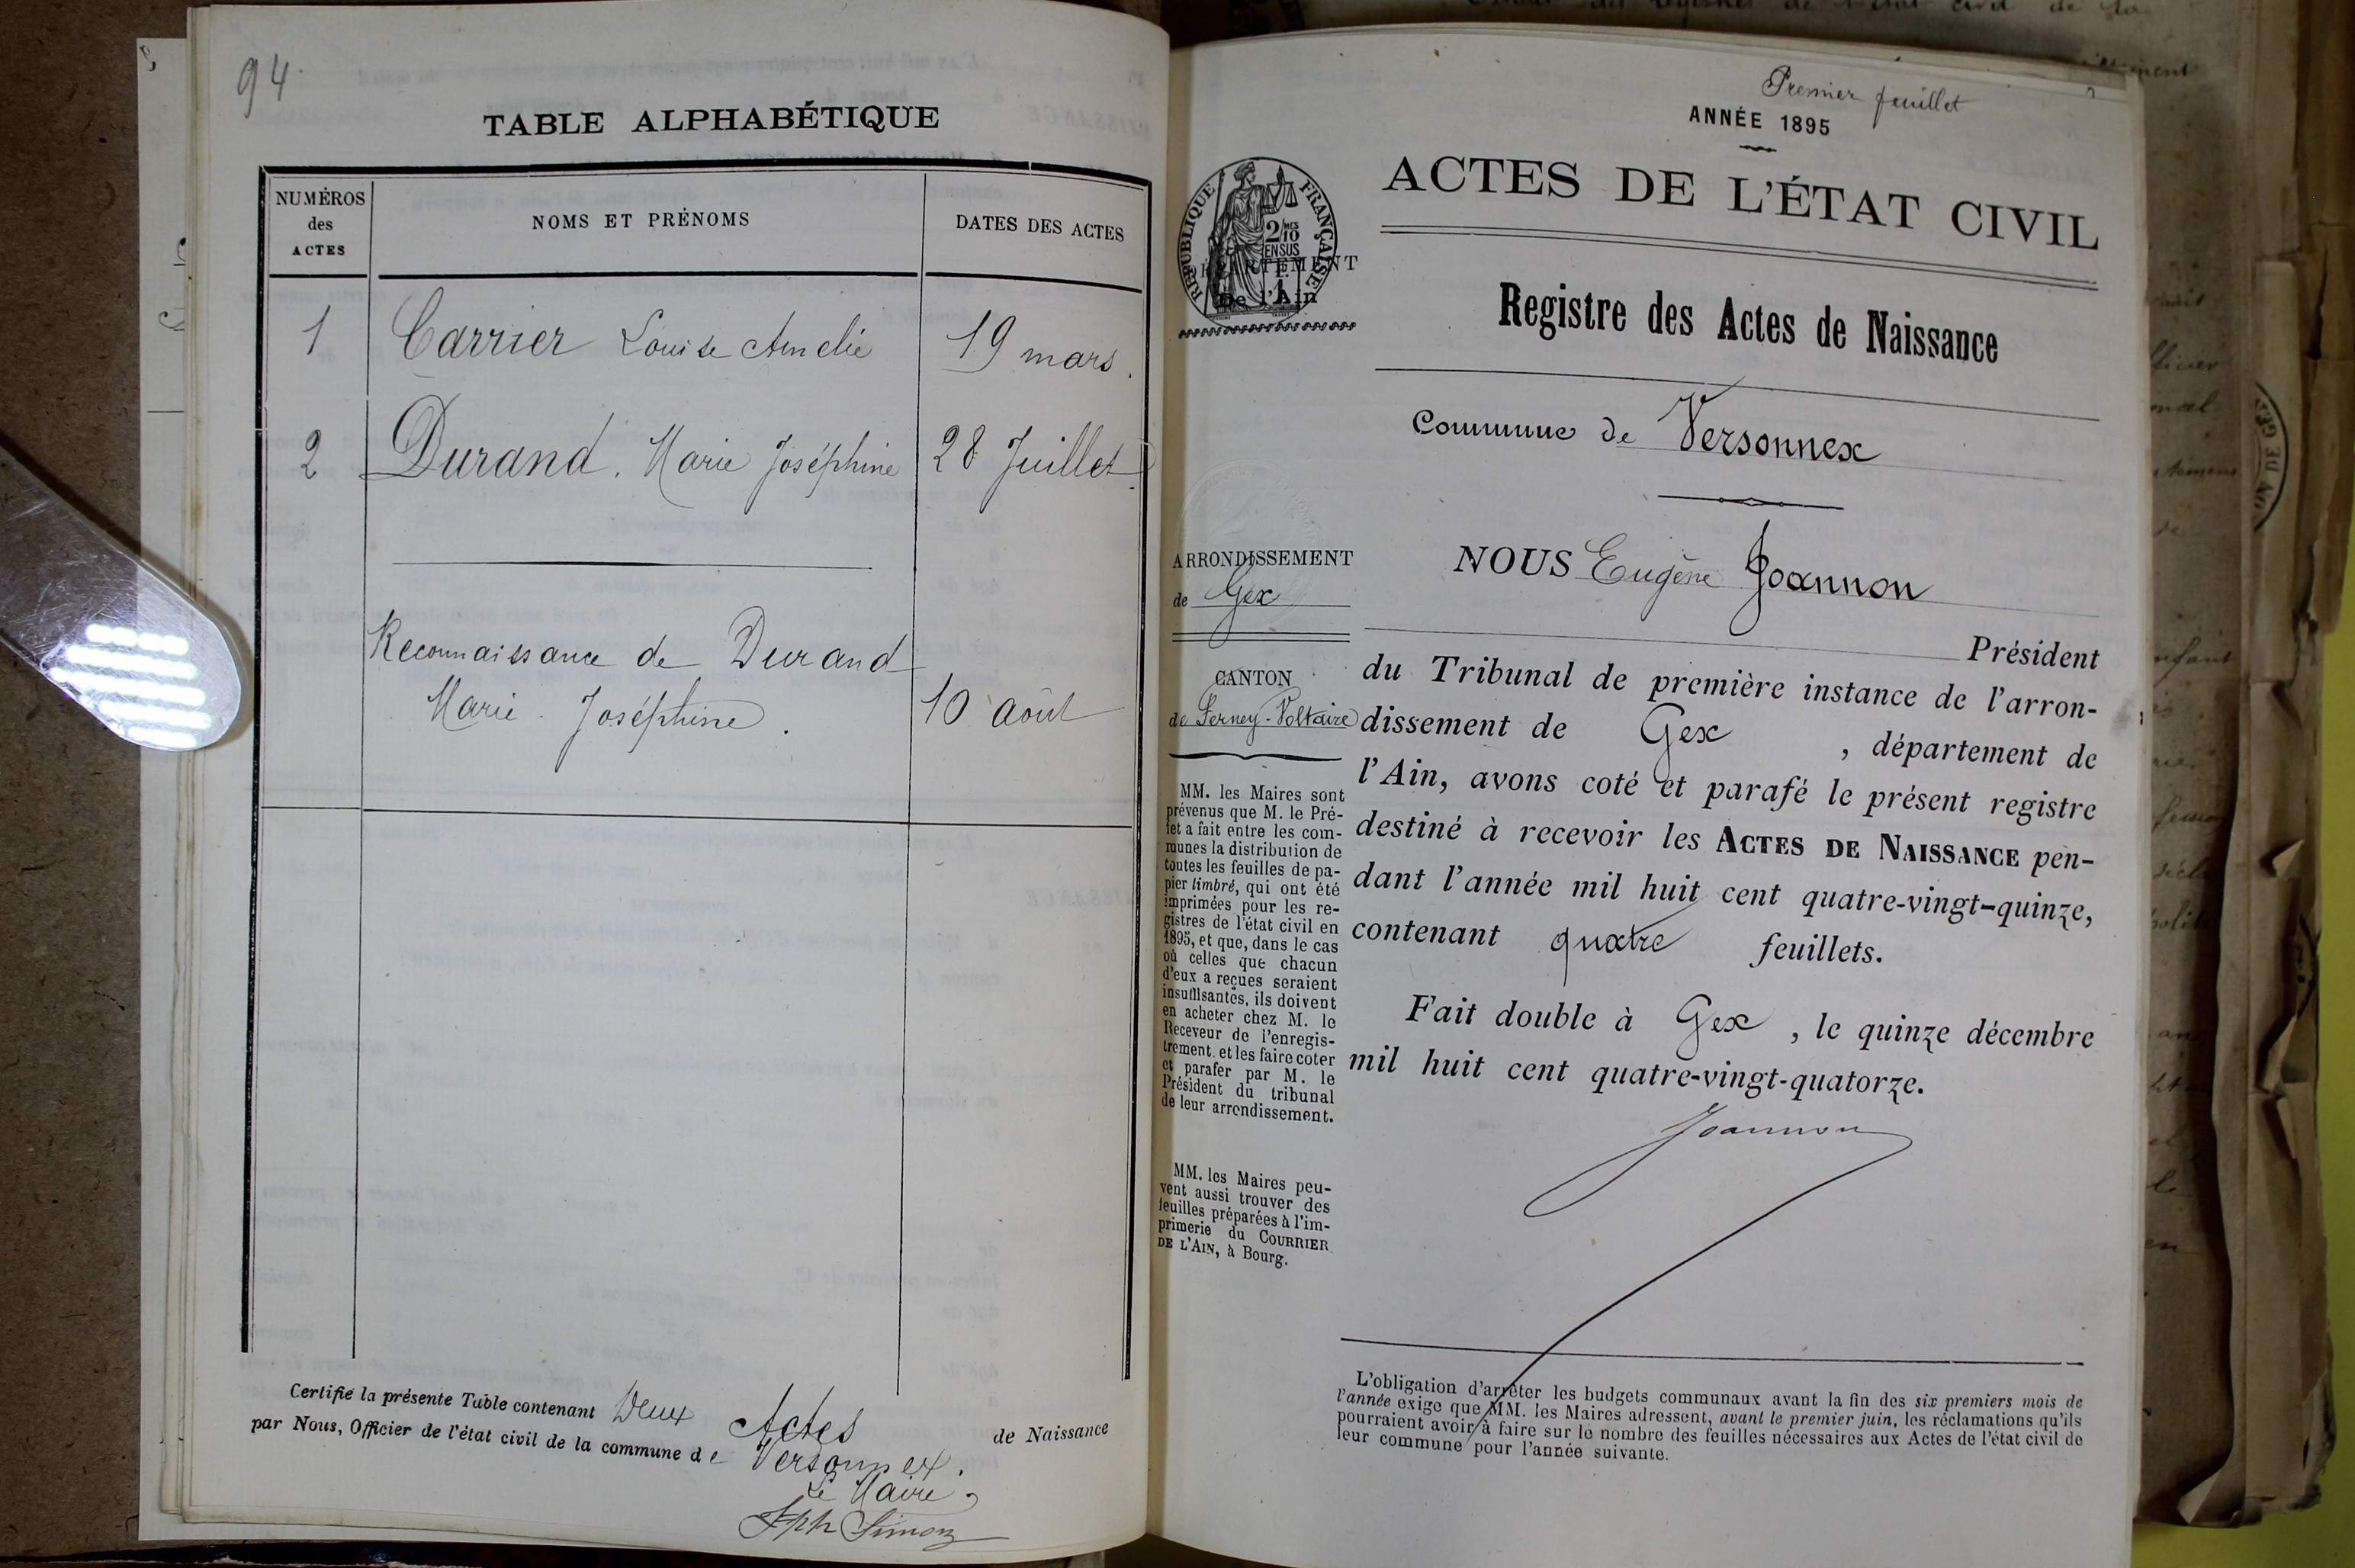 94
TABLE ALPHABÉTIQUE
NUMÉROS
des
ACTES
NOMS ET PRÉNOMS
DATES DES ACTES
1 Carrier Louise Amélie 19 mars.
2 Durand. Marie Joséphine 28 Juillet.
Reconnaissance de Durand
Marie Joséphine. 10 août
Certifié la présente Table contenant Deux Actes de Naissance
par Nous, Officier de l'état civil de la commune de Versonnex.
Le Maire,
Jph Simon
Premier feuillet
ANNÉE 1895
ACTES DE L'ÉTAT CIVIL
RÉPUBLIQUE FRANÇAISE
2/10
EN SUS
DÉPARTEMENT
De l'Ain
Registre des Actes de Naissance
Commune de Versonnex
ARRONDISSEMENT
de Gex
CANTON
de Ferney-Voltaire
MM. les Maires sont
prévenus que M. le Pré-
fet a fait entre les com-
munes la distribution de
toutes les feuilles de pa-
pier timbré, qui ont été
imprimées pour les re-
gistres de l'état civil en
1895, et que, dans le cas
où celles que chacun
d'eux a reçues seraient
insuffisantes, ils doivent
en acheter chez M. le
Receveur de l'enregis-
trement et les faire coter
et parafer par M. le
Président du tribunal
de leur arrondissement.
MM. les Maires peu-
vent aussi trouver des
feuilles préparées à l'im-
primerie du COURRIER
DE L'AIN, à Bourg.
NOUS Eugène Joannon
Président
du Tribunal de première instance de l'arron-
dissement de Gex , département de
l'Ain, avons coté et parafé le présent registre
destiné à recevoir les ACTES DE NAISSANCE pen-
dant l'année mil huit cent quatre-vingt-quinze,
contenant quatre feuillets.
Fait double à Gex , le quinze décembre
mil huit cent quatre-vingt-quatorze.
Joannon
L'obligation d'arrêter les budgets communaux avant la fin des six premiers mois de
l'année exige que MM. les Maires adressent, avant le premier juin, les réclamations qu'ils
pourraient avoir à faire sur le nombre des feuilles nécessaires aux Actes de l'état civil de
leur commune pour l'année suivante.